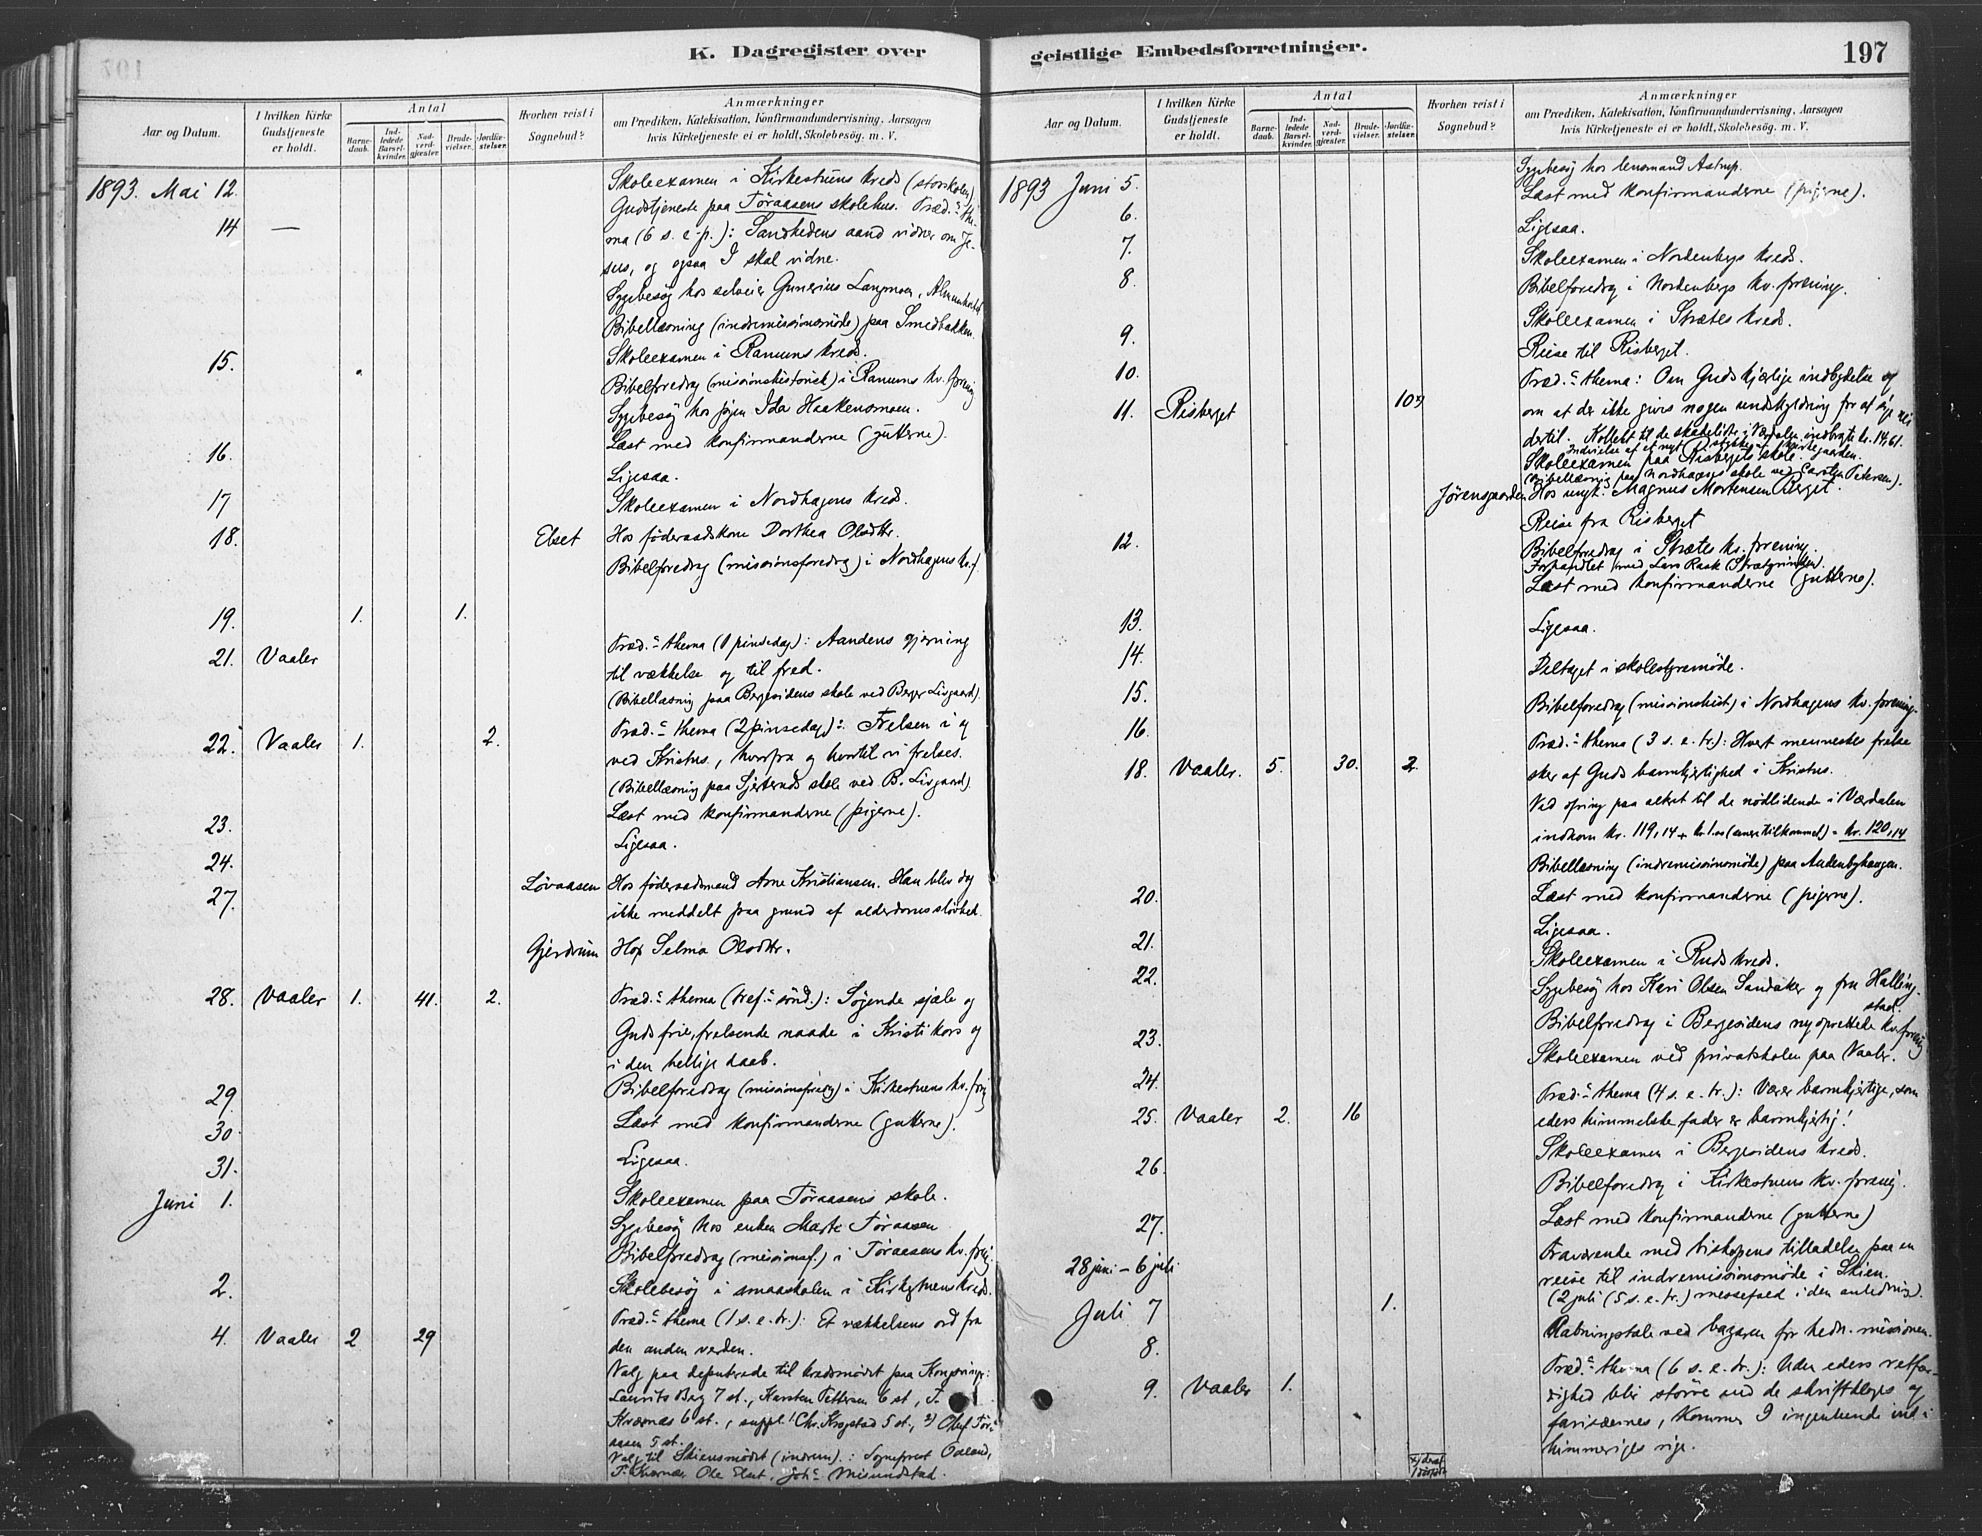 K. Dagregister over
geistlige Embedsforretninger.
197
Aar og Datum.
I hvilken Kirke Gudstjeneste er holdt.
Antal
Barnedaab.
Indledede Barselkvinder.
Nadverdgjæster.
Brudevielser.
Jordfæstelser.
Hvorhen reist i Sognebud?
Anmærkninger
om Prædiken, Katekisation, Konfirmandundervisning, Aarsagen
hvis Kirketjeneste ei er holdt, Skolebesög. m. V.
1893. Mai 12. Skoleexamen i Kirkestuens kreds (storskolen)
14 — Gudstjeneste paa Töraasens skolehus. Præd.s the-
ma (6 s. e. p.): Sandhedens aand vidner om Je-
sus, og ogsaa I skal vidne.
Sygebesög hos selveier Gunerius Langmoen,
Bibellæsning (indremissionsmöde) paa Smedbakken.
15. Skoleexamen i Ranums kreds.
Bibelforedrag (missionshistorisk) i Ranums kv. forening
Sygebesög hos pigen Ida Haakensmoen.
16. Læst med konfirmanderne (gutterne).
17 Ligesaa.
18. Skoleexamen i Nordhagens kred.
Elset Hos föderaadskone Dorthea Olsdtr.
Bibelforedrag (missionsforedrag) i Nordhagens kv. f.
19. 1. 1.
21. Vaaler Præd.s thema (1 pinsedag): Aandens gjerning
til vækkelse og til fred.
(Bibellæsning paa Bergesidens skole ved Berger Livgaard)
22. Vaaler 1. 2. Præd.s thema (2 pinsedag): Frelsen i og
ved Kristus, hvorfra og hvortil vi frelses.
(Bibellæsning paa skole ved B. Livgaard)
23. Læst med konfirmanderne (pigerne).
24. Ligesaa.
27. Lövaasen Hos föderaadsmand Arne Kristiansen. Han blev dog
ikke meddelt paa grund af alderdomsslövhed.
Gjerdrum Hos Selma Olsdtr.
28. Vaaler 1. 41. 2. Præd.s thema (tref.s sönd.): Sögende sjæle og
Guds frie, frelsende naade i Kristi kors og
i den hellige daab.
29. Bibelforedrag (missionsforedrag) i Kirkestuens kv. foreng
30. Læst med konfirmanderne (gutterne).
31. Ligesaa.
Juni 1. Skoleexamen paa Töraasens skole.
Sygebesög hos enken Marte Töraasen
Bibelforedrag (missionsf.) i Töraasens kv. foreng.
2. Skolebesög i smaaskolen i Kirkestuens kreds.
4. Vaaler 2 29 Præd.s thema (1 s. e. tr.): Et vækkelsens ord fra
den anden verden.
Valg paa deputerede til kredsmödet paa Kongsvinger:
Laurits Berg 7 st., Karsten Pettersen 6 st., T.
Kværnæs 6 st., suppl.: Chr. Krogstad 5 st., 2) Oluf Tör-
aasen 5 st.
Valg til Skiensmödet (indrem.): Sogneprest
T. Kværnæs, Ole Elset, Joh.s Misundstad.
Aar og Datum.
I hvilken Kirke Gudstjeneste er holdt.
Antal
Barnedaab.
Indledede Barselkvinder.
Nadverdgjæster.
Brudevielser.
Jordfæstelser.
Hvorhen reist i Sognebud?
Anmærkninger
om Prædiken, Katekisation, Konfirmandundervisning, Aarsagen
hvis Kirketjeneste ei er holdt, Skolebesög. m. V.
Sygebesög hos lensmand Astrup.
1893 Juni 5. Læst med konfirmanderne (pigerne).
6. Ligesaa.
7. Skoleexamen i Nordenbergs kreds.
8. Bibelforedrag i Nordenbergs kv. forening.
Skoleexamen i Strætes kreds.
9. Reise til Risberget.
10.
11. Risberget Præd.s thema: Om Guds kjærlige indbydelse og
om at der ikke gives nogen undskyldning for at sige nei
dertil. Kollekt til de skadelidte i Værdalen indbragte kr. 14,61.
Indvielse af et nyt stykke af kirkegaarden.
Skoleexamen paa Risbergets skole.
(Bibellæsning paa Nordhagens skole ved Carsten Petersen).
Jörensgaarden Hos ungk. Magnus Mortensen Berget.
Reise fra Risberget
12. Bibelforedrag i Strætes kv. forening.
Forhandlet med Lars Rask
Læst med konfirmanderne (gutterne).
13. Ligesaa.
14. Deltaget i skolestyremöde.
15.
16. Bibelforedrag (missionshist) i Nordhagens kv. forening.
18. Vaaler. 5. 30. 2. Præd.s thema (3 s. e. tr.): Hvert menneskes frelse
sker af Guds barmhjertighed i Kristus.
Ved ofring paa alteret til de nödlidende i Værdalen
indkom kr. 119,14 + kr 1.00 (senere tilkommet) = kr. 120,14
Bibellæsning (indremissionsmöde) paa Andenbyhaugen.
20. Læst med konfirmanderne (pigerne).
21. Ligesaa.
22. Skoleexamen i Ruds kreds.
Sygebesög hos Kari Olsen Sandaker og fru Halling-
stad.
23. Bibelforedrag i Bergesidens nyoprettede kv. forening
24. Skoleexamen ved privatskolen paa Vaaler.
25. Vaaler 2. 16 Præd.s thema (4 s. e. tr.): Værer barmhjertige, som
eders himmelske fader er barmhjertig!
26. Skoleexamen i Bergesidens kreds.
Bibelforedrag i Kirkestuens kv. forenig.
27. Læst med konfirmanderne (gutterne)
28 juni – 6 juli Fraværende med biskopens tilladelse paa en
reise til indremissionsmöde i Skien.
(2 juli (5 s. e. tr.) messefald i den anledning).
Juli 7 1.
8. Aabningstale ved bazaren for hedn. missionen.
9. Vaaler 1. Præd.s thema (6 s. e. tr.): Uden eders retfær-
dighed blir större end de skriftkloges og
farisæernes, kommer I ingenlunde ind i
himmeriges rige.